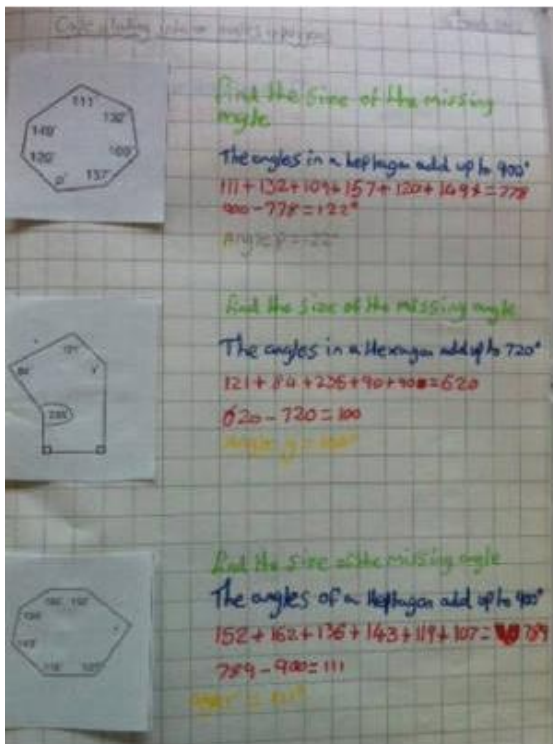 111°
132°
149°
109°
120°
157°
p°
Find the size of the missing
angle
The angles in a heptagon add up to 900°
111+132+109+157+120+149=778
900-778=122°
Angle p=122°
Find the size of the missing angle
121°
84°
y°
235°
The angles in a Hexagon add up to 720°
121+84+235+90+90=620
620-720=100
Angle y=100°
Find the size of the missing angle
The angles of a Heptagon add up to 900°
152+162+136+143+119+107=789
789-900=111